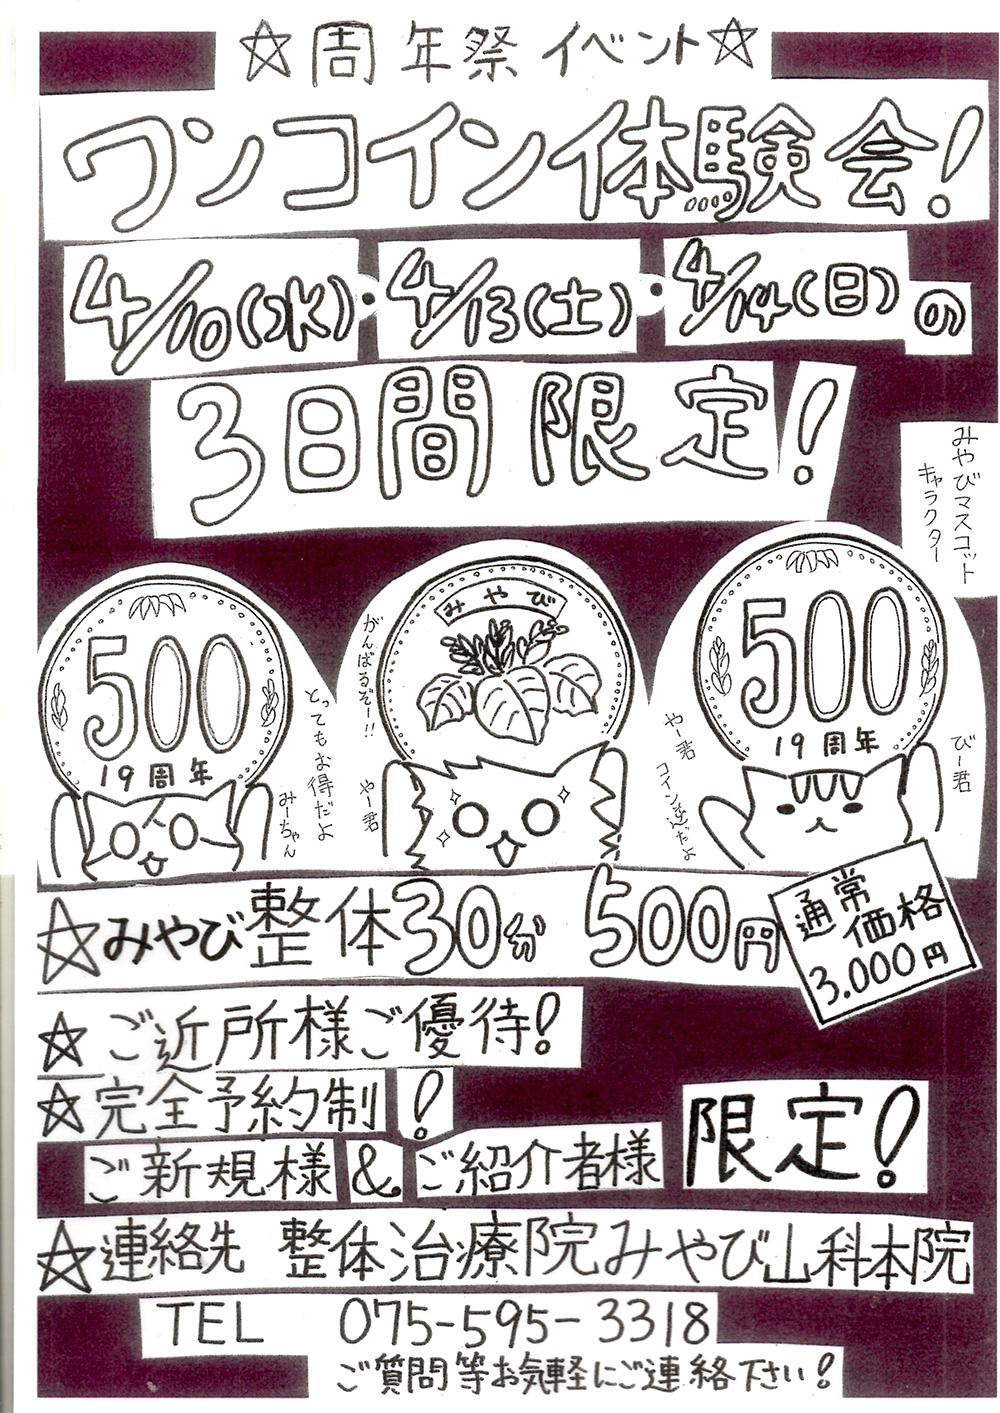 ☆周年祭イベント☆
ワンコイン体験会!
4/10(水)・4/13(土)・4/14(日)の
3日間限定!
みやびマスコット
キャラクター
500
19周年
とってもお得だよ
みーちゃん
がんばるぞー!!
やー君
みやび
500
19周年
やー君
コイン逆だよ
びー君
☆みやび整体30分 500円
通常
価格
3.000円
☆ご近所様ご優待!
☆完全予約制!
ご新規様&ご紹介者様 限定!
☆連絡先 整体治療院みやび山科本院
TEL 075-595-3318
ご質問等お気軽にご連絡下さい!